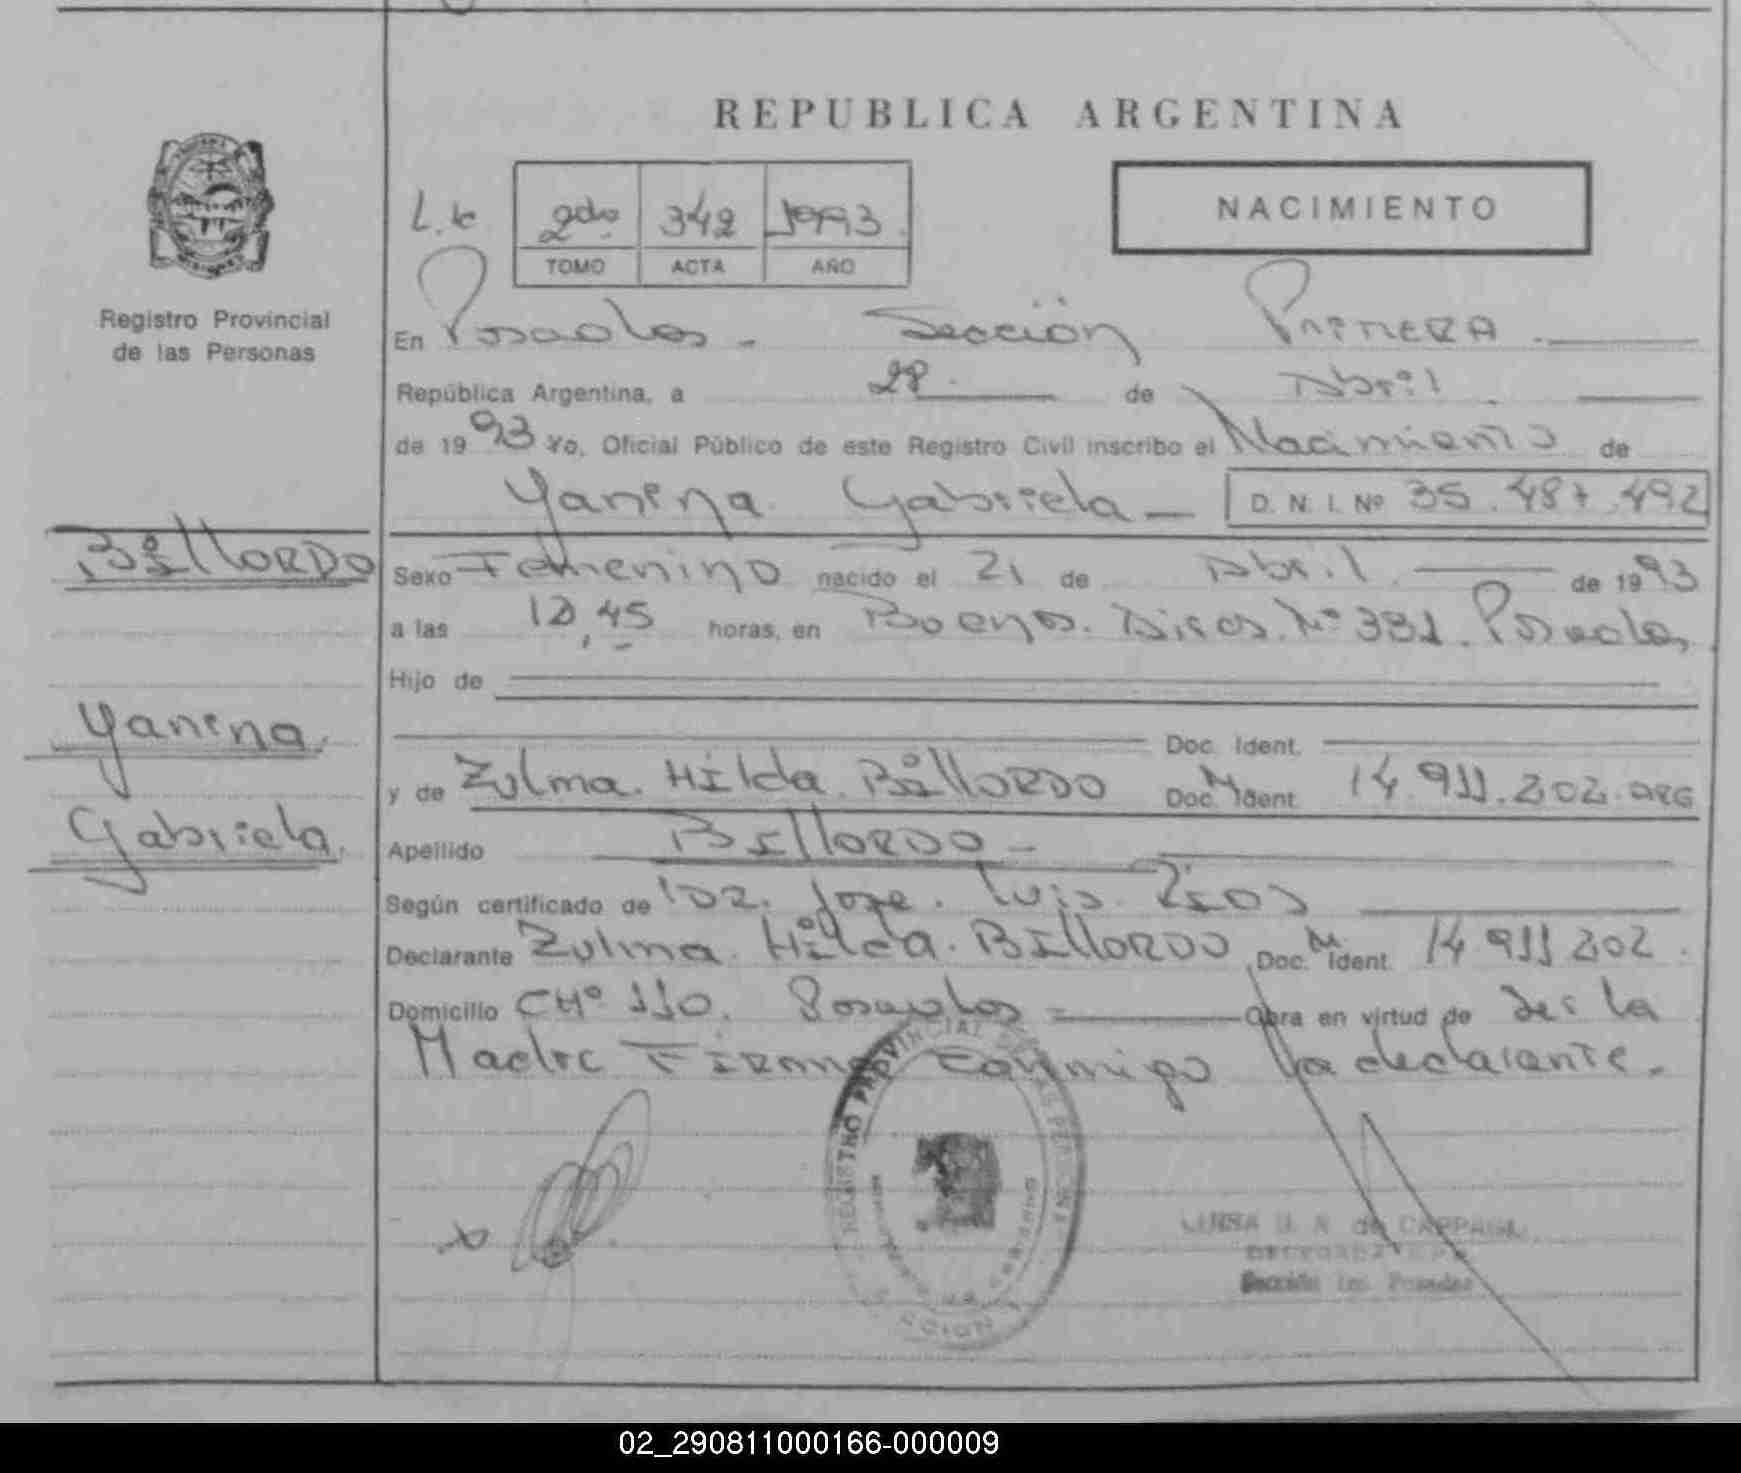 REPUBLICA ARGENTINA
NACIMIENTO
2do. 342 1993
TOMO ACTA AÑO
Registro Provincial
de las Personas
En Posadas - Sección Primera
República Argentina, a 28 de Abril
de 1993 Yo, Oficial Público de este Registro Civil inscribo el Nacimiento de
Yanina Gabriela - D. N. I. Nº 35.487.492
BillORDO
Sexo Femenino nacido el 21 de Abril de 1993
a las 12,45 horas, en Buenos Aires Nº 331. Posadas
Hijo de
Doc. Ident.
Yanina
Gabriela
y de Zulma Hilda BillORDO Doc. Ident. 14.911.202. ARG
Apellido BillORDO -
Según certificado de Jose Luis
Declarante Zulma Hilda BillORDO Doc. Ident. 14 911 202.
Domicilio CHº 110. Posadas Obra en virtud de Ser la
Madre Firma Conmigo la declarante.
REGISTRO PROVINCIAL DE LAS PERSONAS
Sección 1ra. Posadas
02_290811000166-000009